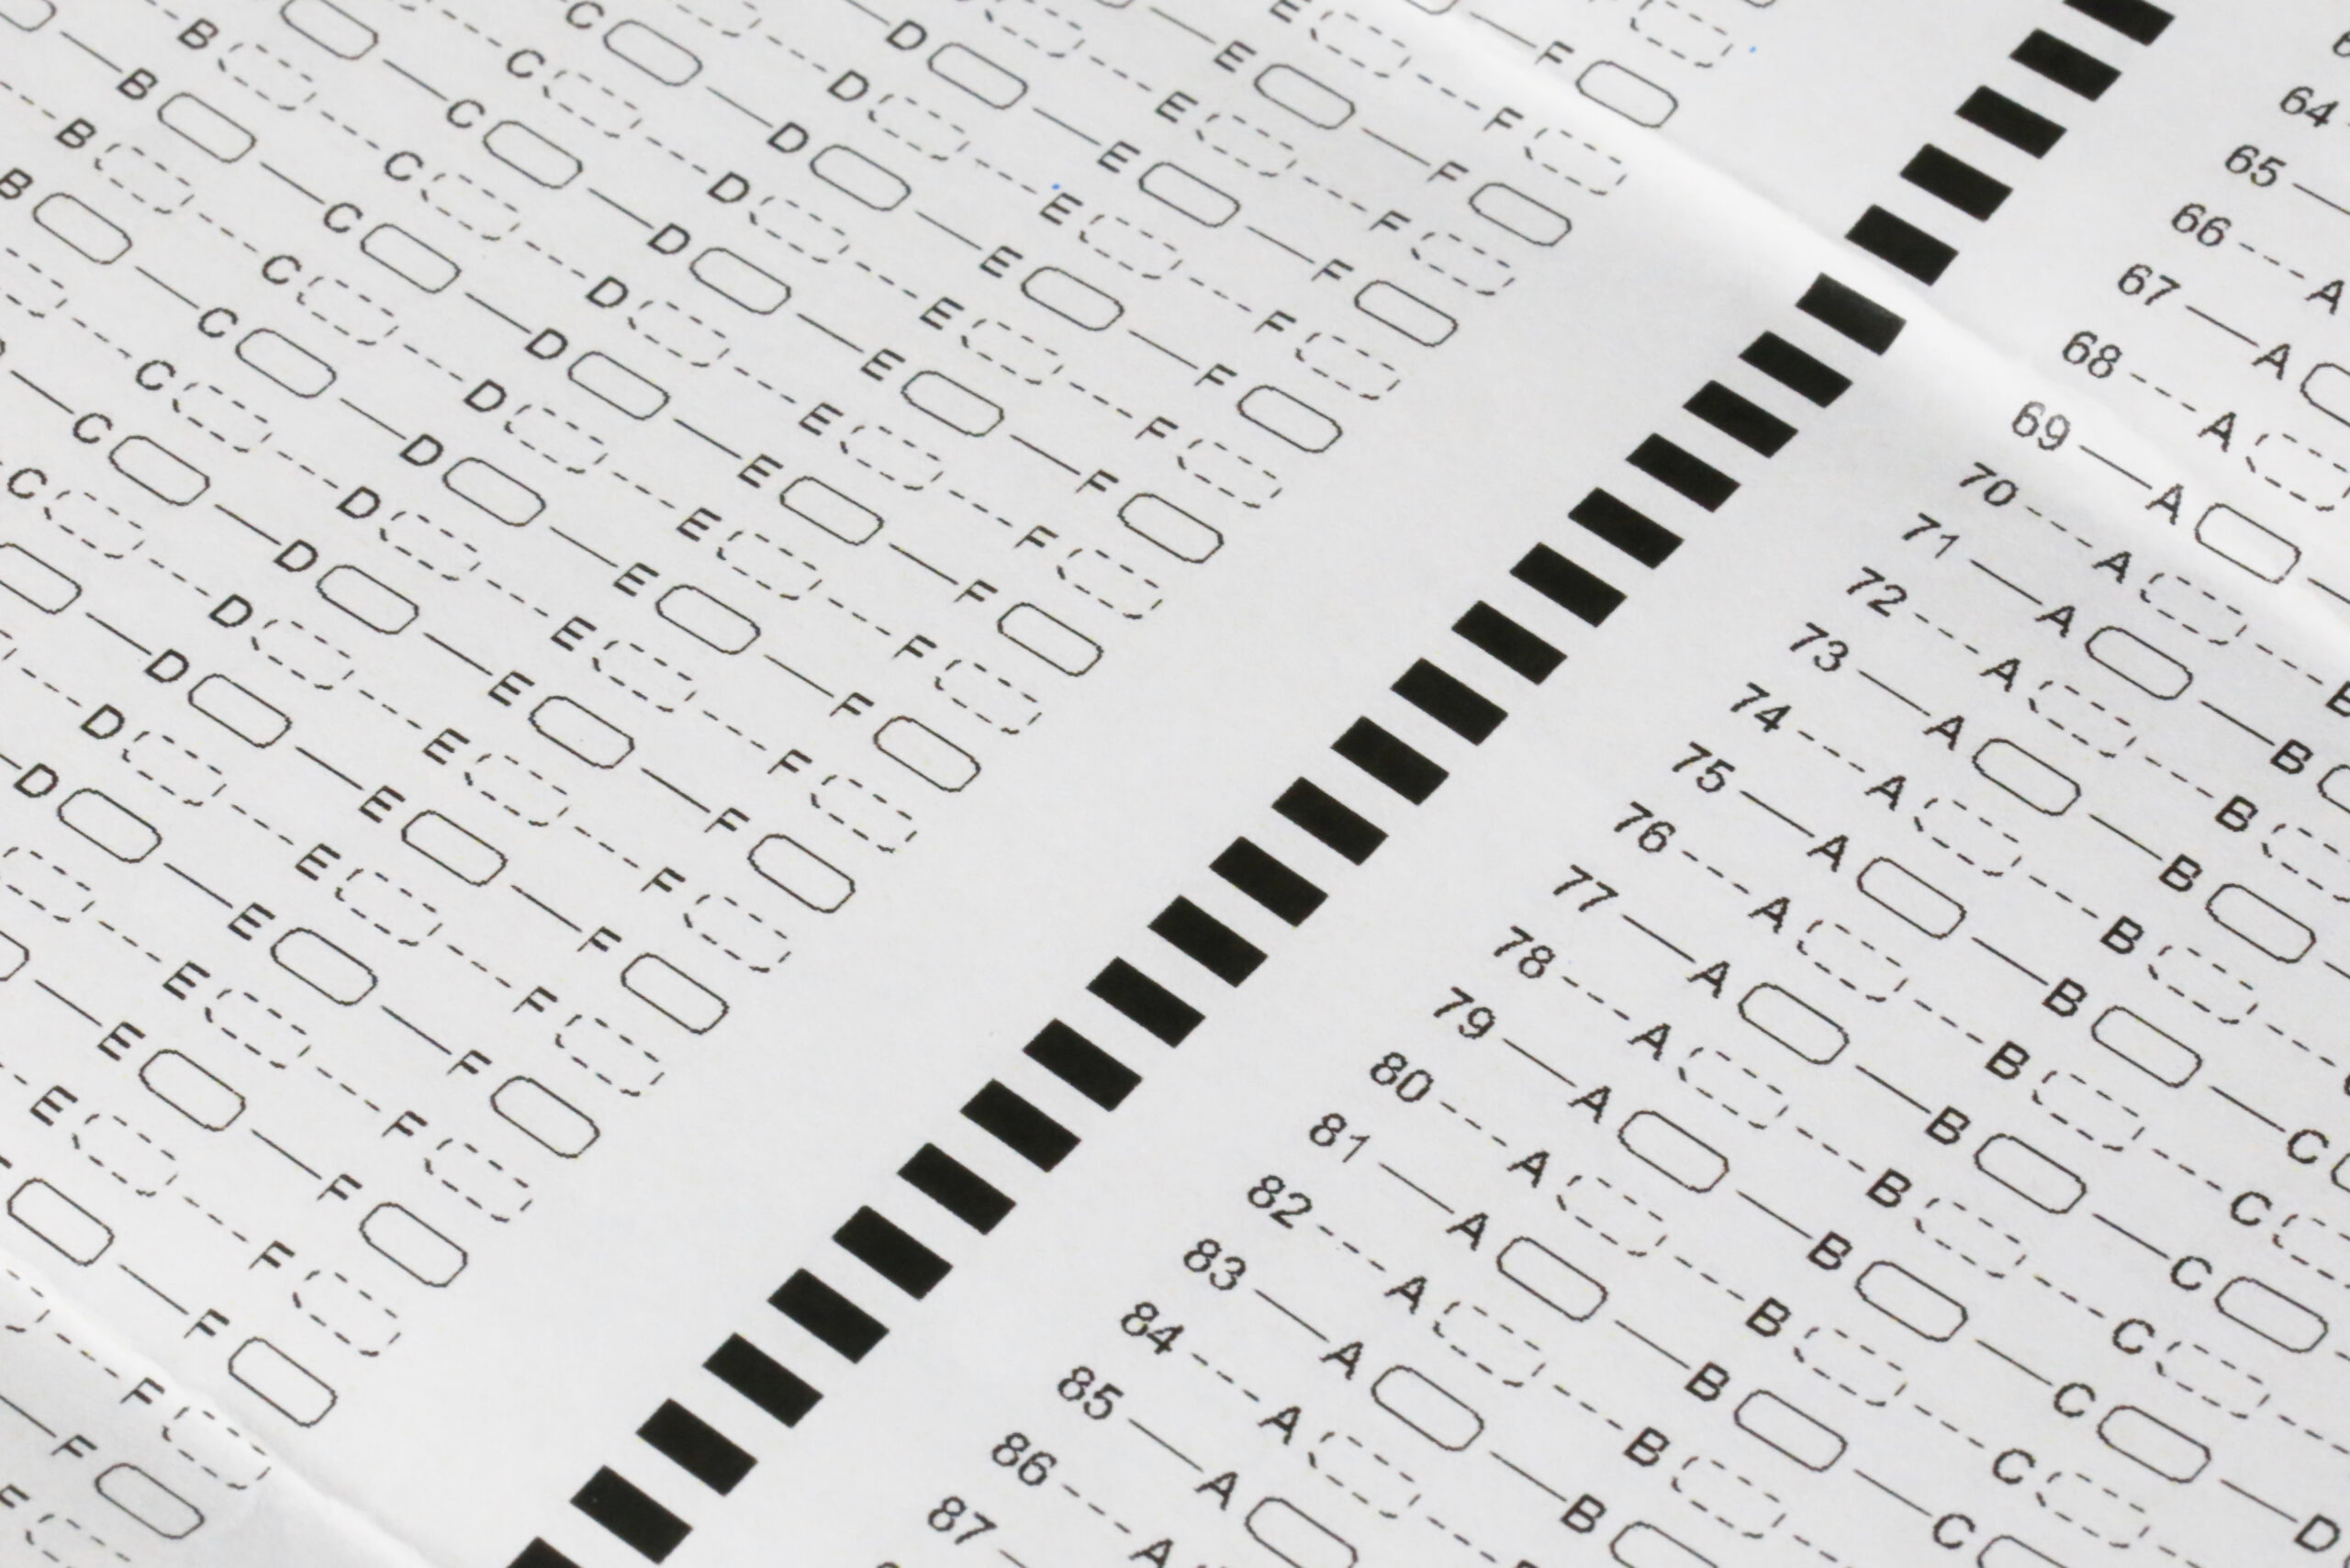 F
E F
E F
E F
D E F
D E F
C D E F
C D E F
C D E F
B C D E F
B C D E F
B C D E F
B C D E F
C D E F
C D E F
C D E F
D E F
D E F
D E F
E F
E F
E F
F
F
F
64
65
66 A
67 A
68 A
69 A
70 A
71 A B
72 A B
73 A B
74 A B
75 A B C
76 A B C
77 A B C
78 A B C
79 A B C D
80 A B C
81 A B C
82 A B
83 A B
84 A
85 A
86 A
87